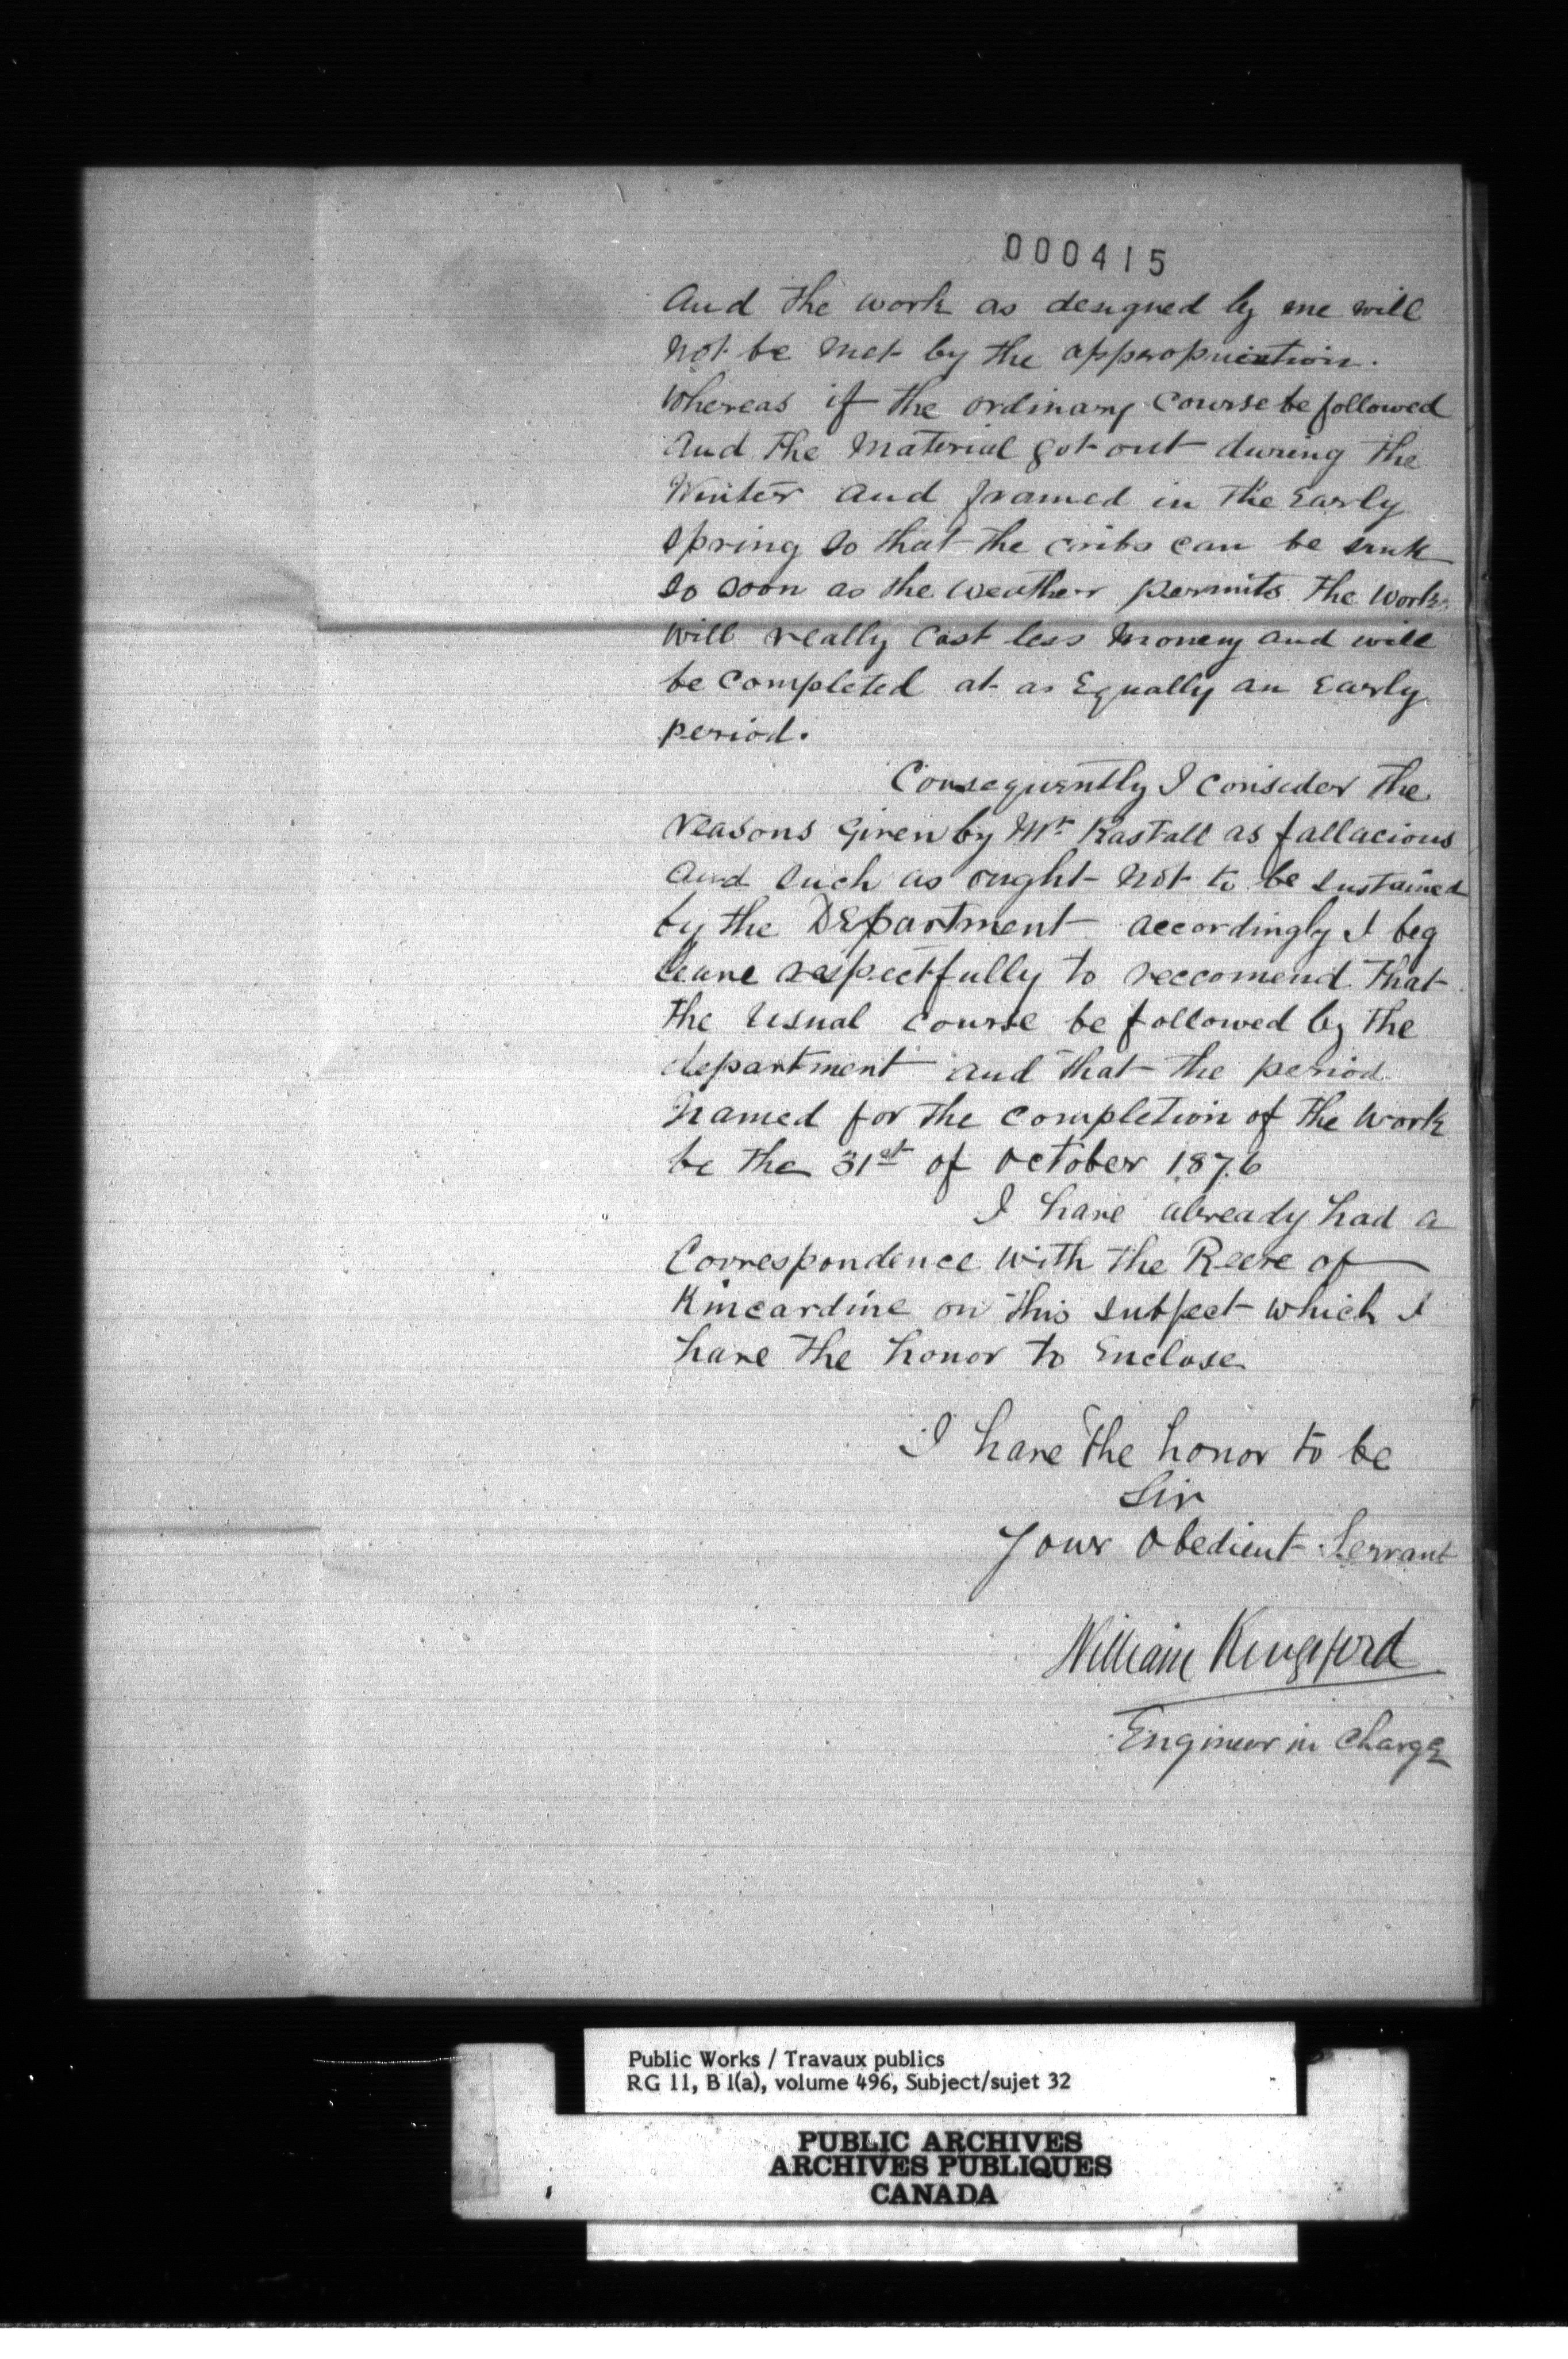 000415
and the work as designed by me will
not be met by the appropriation.
Whereas if the ordinary course be followed
and the material got out during the
Winter and framed in the Early
spring so that the cribs can be sunk
so soon as the weather permits the work
will really cost less money and will
be completed at as Equally an Early
period.
Consequently I consider the
reasons given by Mr Rastall as fallacious
and such as ought not to be sustained
by the Department accordingly I beg
leave respectfully to reccomend that
the usual course be followed by the
department and that the period
named for the completion of the work
be the 31st of October 1876
I have already had a
Correspondence with the Reeve of
Kincardine on this subject which I
have the honor to Enclose
I have the honor to be
Sir
Your Obedient Servant
William Kingsford
Engineer in Charge
Public Works / Travaux publics
RG 11, B 1(a), volume 496, Subject/sujet 32
PUBLIC ARCHIVES
ARCHIVES PUBLIQUES
CANADA